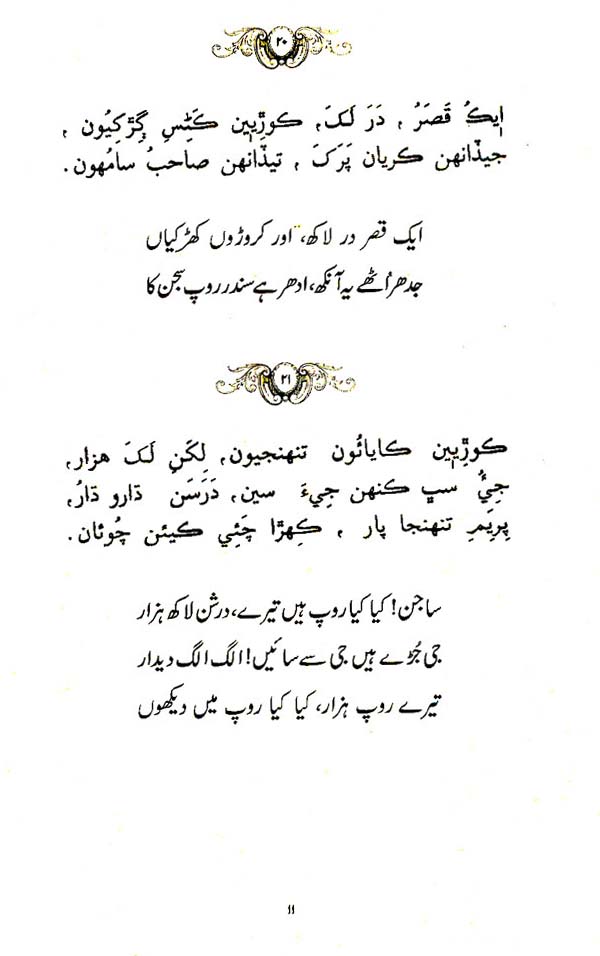 ۲۰
اِيڪُ قَصَرُ ، دَرَ لَکَ، ڪوڙِيين ڪَڻِسِ ڳِڙکِيُون ،
جيڏانهن ڪريان پَرَکَ ، تيڏانهن صاحبُ سامُهون.
ایک قصر در لاکھ، اور کروڑوں کھڑکیاں
جدھر اُٹھے یہ آنکھ، ادھر ہے سندر روپ سجن کا
۲۱
ڪوڙِيين ڪايائُون تنهنجيون، لِکَنِ لَکَ هزار،
جِيُّ سڀ ڪنهن جِيءَ سين، دَرَسَن ڌارو ڌارُ،
پِريَمِ تنهنجا پار ، ڪِهڙا چَئِي ڪيئن چُوئان.
ساجن! کیا کیا روپ ہیں تیرے، درشن لاکھ ہزار
جی جُڑے ہیں جی سے سائیں! الگ الگ دیدار
تیرے روپ ہزار، کیا کیا روپ میں دیکھوں
۱۱